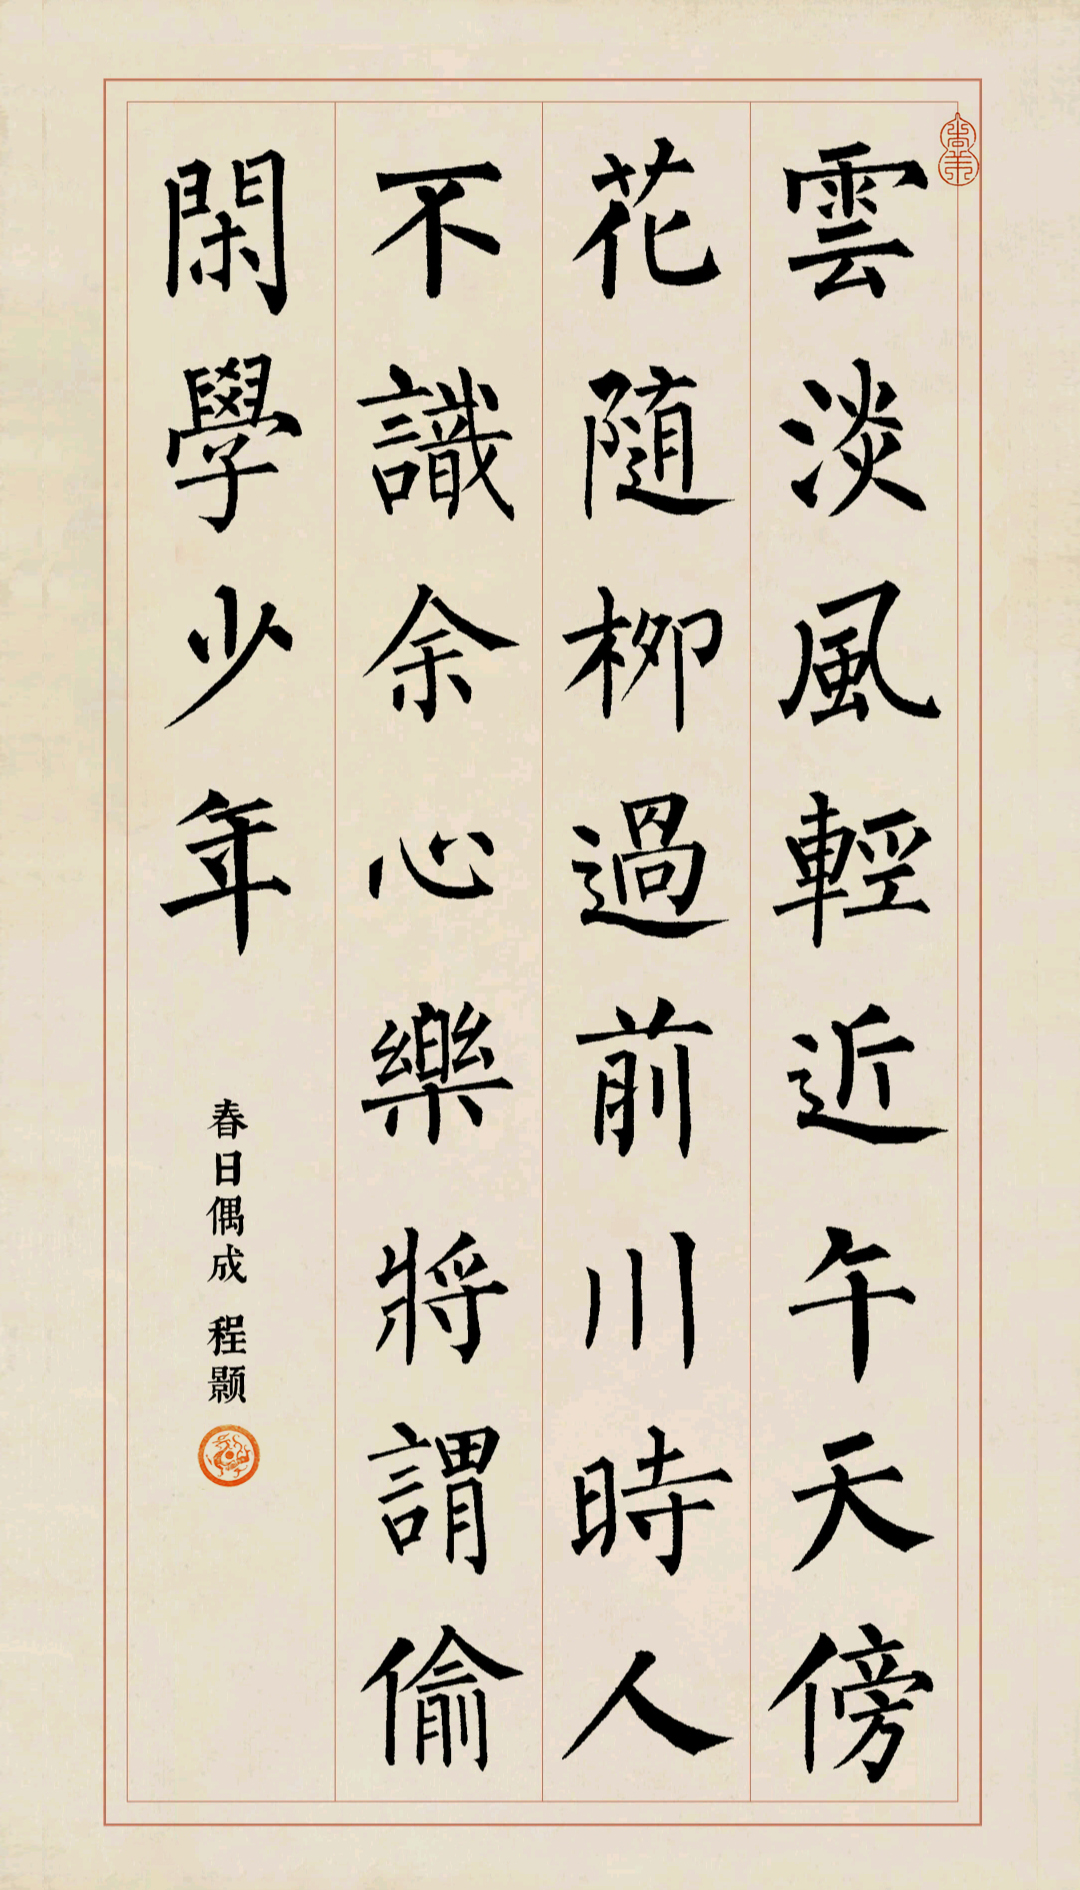 雲淡風輕近午天傍
花随柳過前川時人
不識余心樂將謂偷
閑學少年
春日偶成 程颢